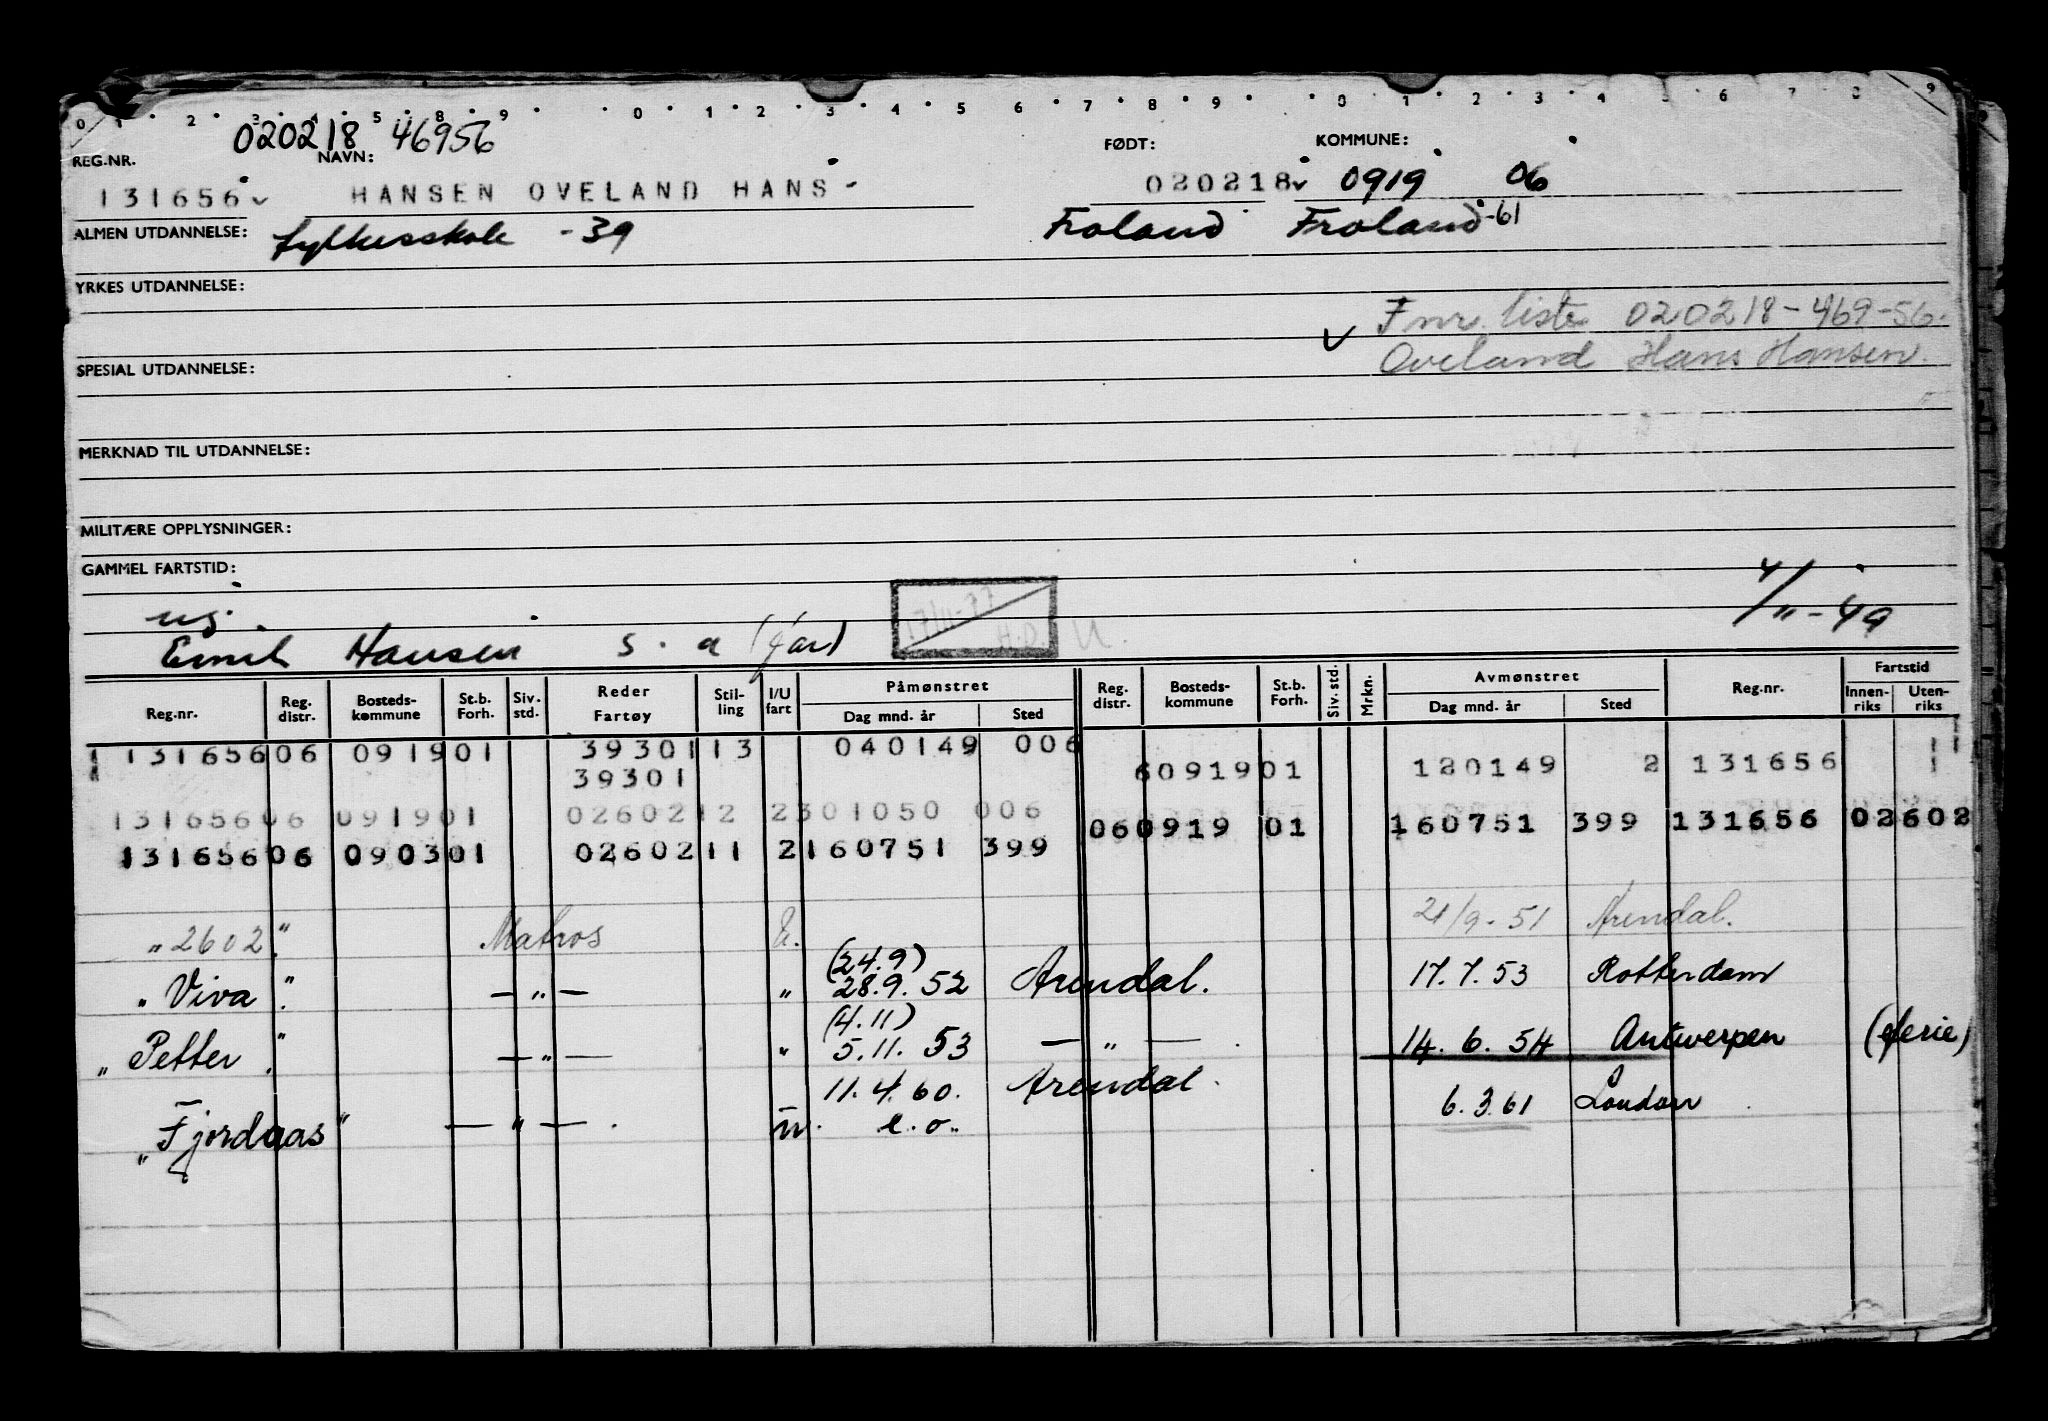 0 1 2 3 4 5 8 9 0 1 2 3 4 5 6 7 8 9 0 1 2 3 4 5 6 7 8 9
020218 46956
REG.NR. NAVN: FØDT: KOMMUNE:
131656 HANSEN OVELAND HANS - 020218 0919 06
ALMEN UTDANNELSE: fylkesskole -39 Froland Froland -61
YRKES UTDANNELSE:
Fnr. liste 020218-469-56.
SPESIAL UTDANNELSE: Oveland Hans Hansen.
MERKNAD TIL UTDANNELSE:
MILITÆRE OPPLYSNINGER:
GAMMEL FARTSTID:
17/11-77 4/11-49
Emil Hansen s. a (far) H.O. U.
Reg.nr. Reg. distr. Bosteds-kommune St.b. Forh. Siv. std. Reder Fartøy Stil-ling I/U fart Påmønstret Dag mnd. år Sted Reg. distr. Bosteds-kommune St.b. Forh. Siv. std. Mrkn. Avmønstret Dag mnd. år Sted Reg.nr. Fartstid Innen-riks Uten-riks
131656 06 0919 01 39301 13 040149 006
39301 6 0919 01 120149 2 131656
131656 06 0919 01 02602 12 2 301050 006
06 0919 01 160751 399 131656 02602
131656 06 0903 01 02602 11 2 160751 399
" 2602 " Matros U. 21/9-51 Arendal.
(24.9)
" Viva " — " — " 28.9.52 Arendal. 17.7.53 Rotterdam
(4.11)
" Petter " — " — " 5.11.53 — " — . 14.6.54 Antwerpen (ferie)
11.4.60. Arendal. 6.3.61 London
" Fjordaas " — " — . e.o.